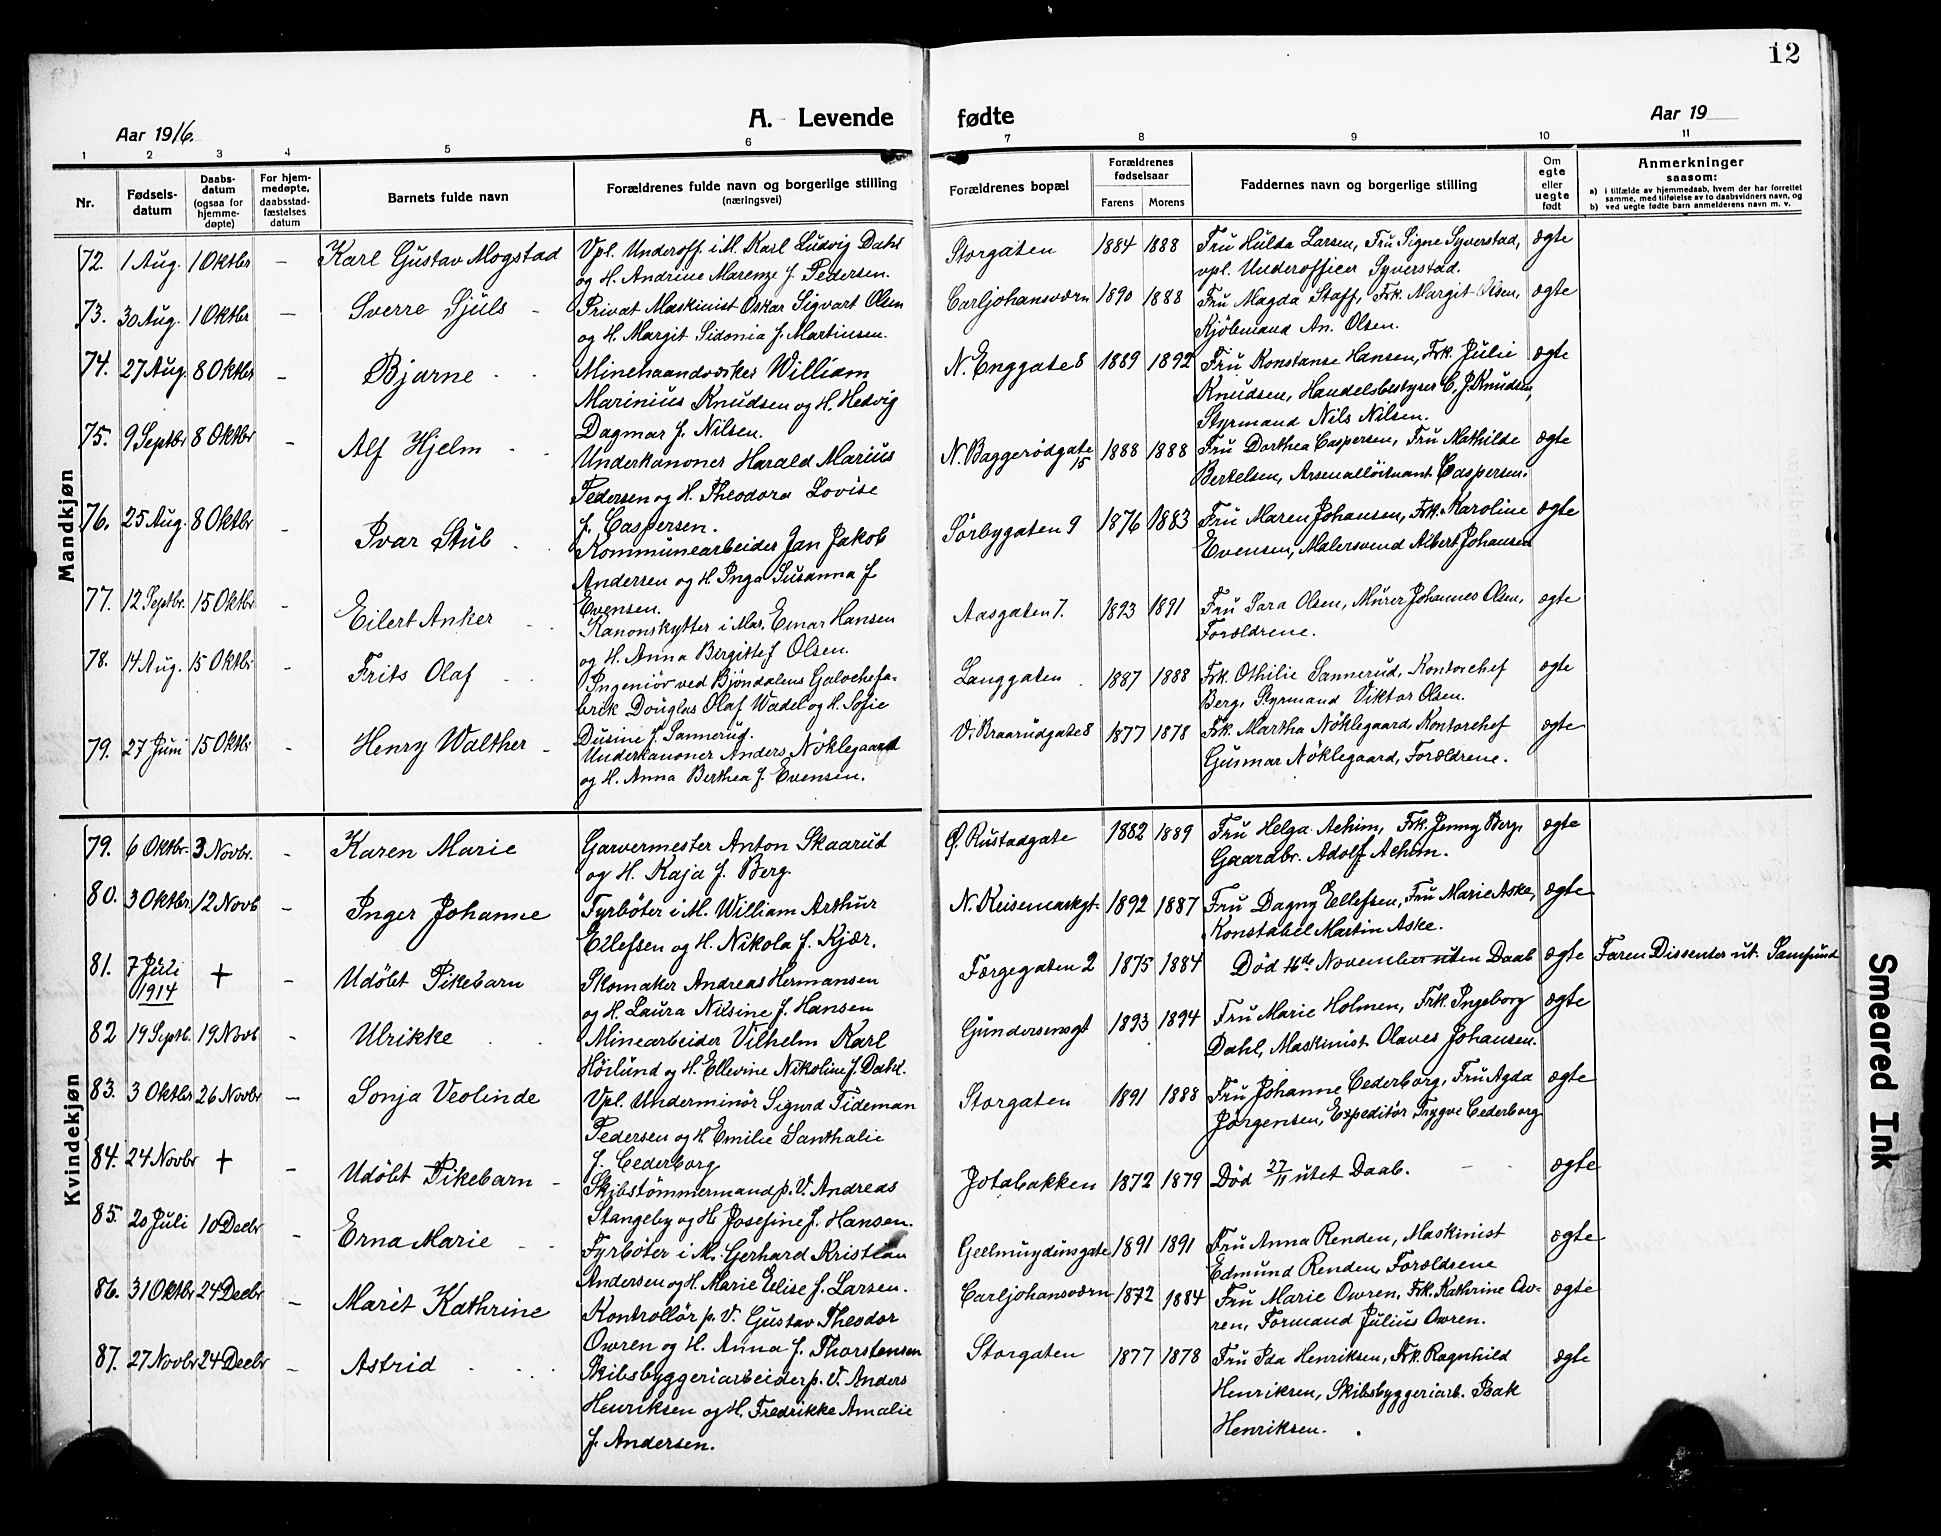 12
Aar 1916.
A. Levende fødte
Aar 19
1 2 3 4 5 6 7 8 9 10 11
Nr.
Fødsels-
datum
Daabs-
datum
(ogsaa for
hjemme-
døpte)
For hjem-
medøpte,
daabsstad-
fæstelses
datum
Barnets fulde navn
Forældrenes fulde navn og borgerlige stilling
(næringsvei)
Forældrenes bopæl
Forældrenes
fødselsaar
Farens Morens
Faddernes navn og borgerlige stilling
Om
egte
eller
uegte
født
Anmerkninger
saasom:
a) i tilfælde av hjemmedaab, hvem der har forrettet
samme, med tilføielse av to daabsvidners navn, og
b) ved uegte fødte barn anmelderens navn m. v.
Mandkjøn
72. 1 Aug. 1 Oktbr - Karl Gustav Mogstad
Vpl. Underoff. i M. Karl Ludvig Dahl
og H. Andrine Marenze f. Pedersen.
Storgaten 1884 1888
Fru Hulda Larsen, Fru Signe Syverstad,
vpl. Underofficer Syverstad.
ægte
73. 30 Aug. 1 Oktbr - Sverre Sjuls -
Privat Maskinist Oskar Sigvart Olsen
og H. Margit Sidonia f. Martinsen.
Carljohansværn 1890 1888
Fru Magda Staff, Frk. Margit Olsen,
Kjöbmand An. Olsen.
ægte
74. 27 Aug. 8 Oktbr - Bjarne - -
Minehaandværker William
Marinius Knudsen og H. Hedvig
Dagmar f. Nilsen.
N. Enggate 8 1889 1892
Fru Konstanse Hansen, Frk. Julie
Knudsen, Handelsbestyrer C. J. Knudsen,
Styrmand Nils Nilsen.
ægte
75. 9 Septbr 8 Oktbr - Alf Hjelm - -
Underkanoner Harald Marius
Pedersen og H. Theodora Lovise
f. Caspersen.
N. Baggerødgate
15
1888 1888
Fru Dorthea Caspersen, Fru Mathilde
Bertelsen, Arsenalløitnant Caspersen.
ægte
76. 25 Aug. 8 Oktbr - Ivar Stub -
Kommunearbeider Jan Jakob
Andersen og H Inga Susanna f
Evensen.
Sörbygaten 9 1876 1883
Fru Maren Johansen, Frk. Karoline
Evensen, Malersvend Albert Johansen
ægte
77. 12 Septbr. 15 Oktbr. - Eilert Anker - -
Kanonskytter i Mar. Einar Hansen
og H. Anna Birgitte f Olsen.
Aasgaten 7. 1893 1891
Fru Sara Olsen, Murer Johannes Olsen,
Forældrene.
ægte
78. 14 Aug. 15 Oktbr - Frits Olaf - -
Ingeniör ved Bjöndalens Galochefa-
brik Douglas Olaf Wadel og H. Sofie
Dusine f. Sannerud.
Langgaten 1887 1888
Frk. Othilie Sannerud, Kontorchef
Berg, Styrmand Viktor Olsen.
ægte
79. 27 Juni 15 Oktbr - Henry Walther -
Underkanoner Anders Nöklegaard
og H. Anna Berthea f. Evensen.
V. Braarudgate 8 1877 1878
Frk. Martha Nöklegaard, Kontorchef
Gunnar Nöklegaard, Forældrene.
ægte
Kvindekjøn
79. 6 Oktbr. 3 Novbr. - Karen Marie
Garvermester Anton Skaarud
og H. Kaja f. Berg.
Ø. Rustadgate 1882 1889
Fru Helga Achim, Frk. Jenny Berg,
Gaardbr. Adolf Achim.
ægte
80. 3 Oktbr. 12 Novb - Inger Johanne
Fyrböter i M. William Arthur
Ellefsen og H. Nikola f. Kjær.
N. Keisemarkgt. 1892 1887
Fru Dagny Ellefsen, Fru Marie Aske,
Konstabel Martin Aske.
ægte
81. 7 Juli
1914
+ - Udöbt Pikebarn
Skomaker Andreas Hermansen
og H. Laura Nilsine f. Hansen
Færgegaten 2 1875 1884
Død 16de November uten Daab
ægte
Faren Dissenter ut. Samfund
82 19 Septb. 19 Novb - Ulrikke - -
Minearbeider Vilhelm Karl
Höilund og H. Ellevine Nikoline f. Dahl.
Gundersensgt 1893 1894
Fru Marie Holmen, Frk. Ingeborg
Dahl, Maskinist Olaves Johansen.
ægte
83. 3 Oktbr 26 Novbr - Sonja Veolinde
Vpl. Underminör Sigurd Tideman
Pedersen og H Emilie Santhalie
f. Cederborg
Storgaten 1891 1888
Fru Johanne Cederborg, Fru Agda
Jörgensen, Expeditör Trygve Cederborg
ægte
84. 24 Novbr + - Udöbt Pikebarn -
Skibstömmermand p. V. Andreas
Stangeby og H. Josefine f. Hansen.
Jotabakken 1872 1879
Död 27/11 utet Daab.
ægte
85. 20 Juli 10 Decbr - Erna Marie - -
Fyrböter i M. Gerhard Kristian
Andersen og H. Marie Elise f. Larsen.
Geelmuydensgate 1891 1891
Fru Anna Renden, Maskinist
Edmund Renden, Forældrene
ægte
86. 31 Oktbr 24 Decbr - Marit Kathrine
Kontrollör p. V. Gustav Theodor
Owren og H. Anna f. Thorstensen
Carljohansværn 1872 1884
Fru Marie Owren, Frk. Kathrine Ow-
ren, Formand Julius Owren.
ægte
87. 27 Novbr 24 Decbr - Astrid - - -
Skibsbyggeriarbeider p. V. Anders
Henriksen og H. Fredrikke Amalie
f. Andersen.
Storgaten 1877 1878
Fru Ida Henriksen, Frk. Ragnhild
Henriksen, Skibsbyggeriarb. Isak
Henriksen.
ægte
Smeared Ink